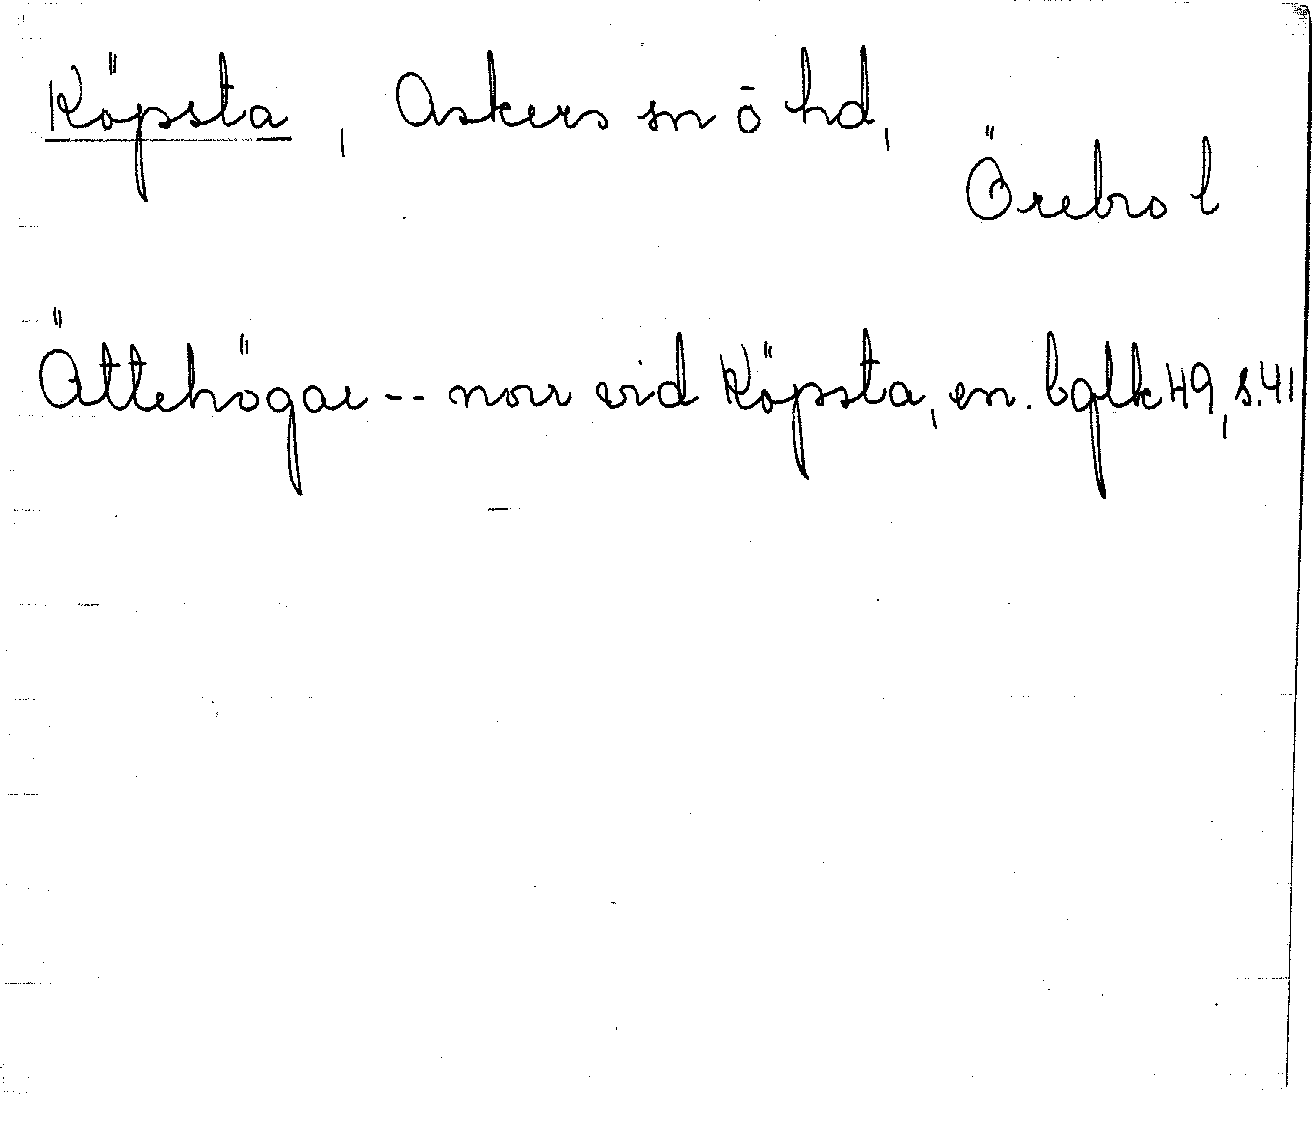 Köpsta, Askers sn ō hd,
Örebro l
Ättehögar -- norr vid Köpsta, en. bglk 49, s. 41